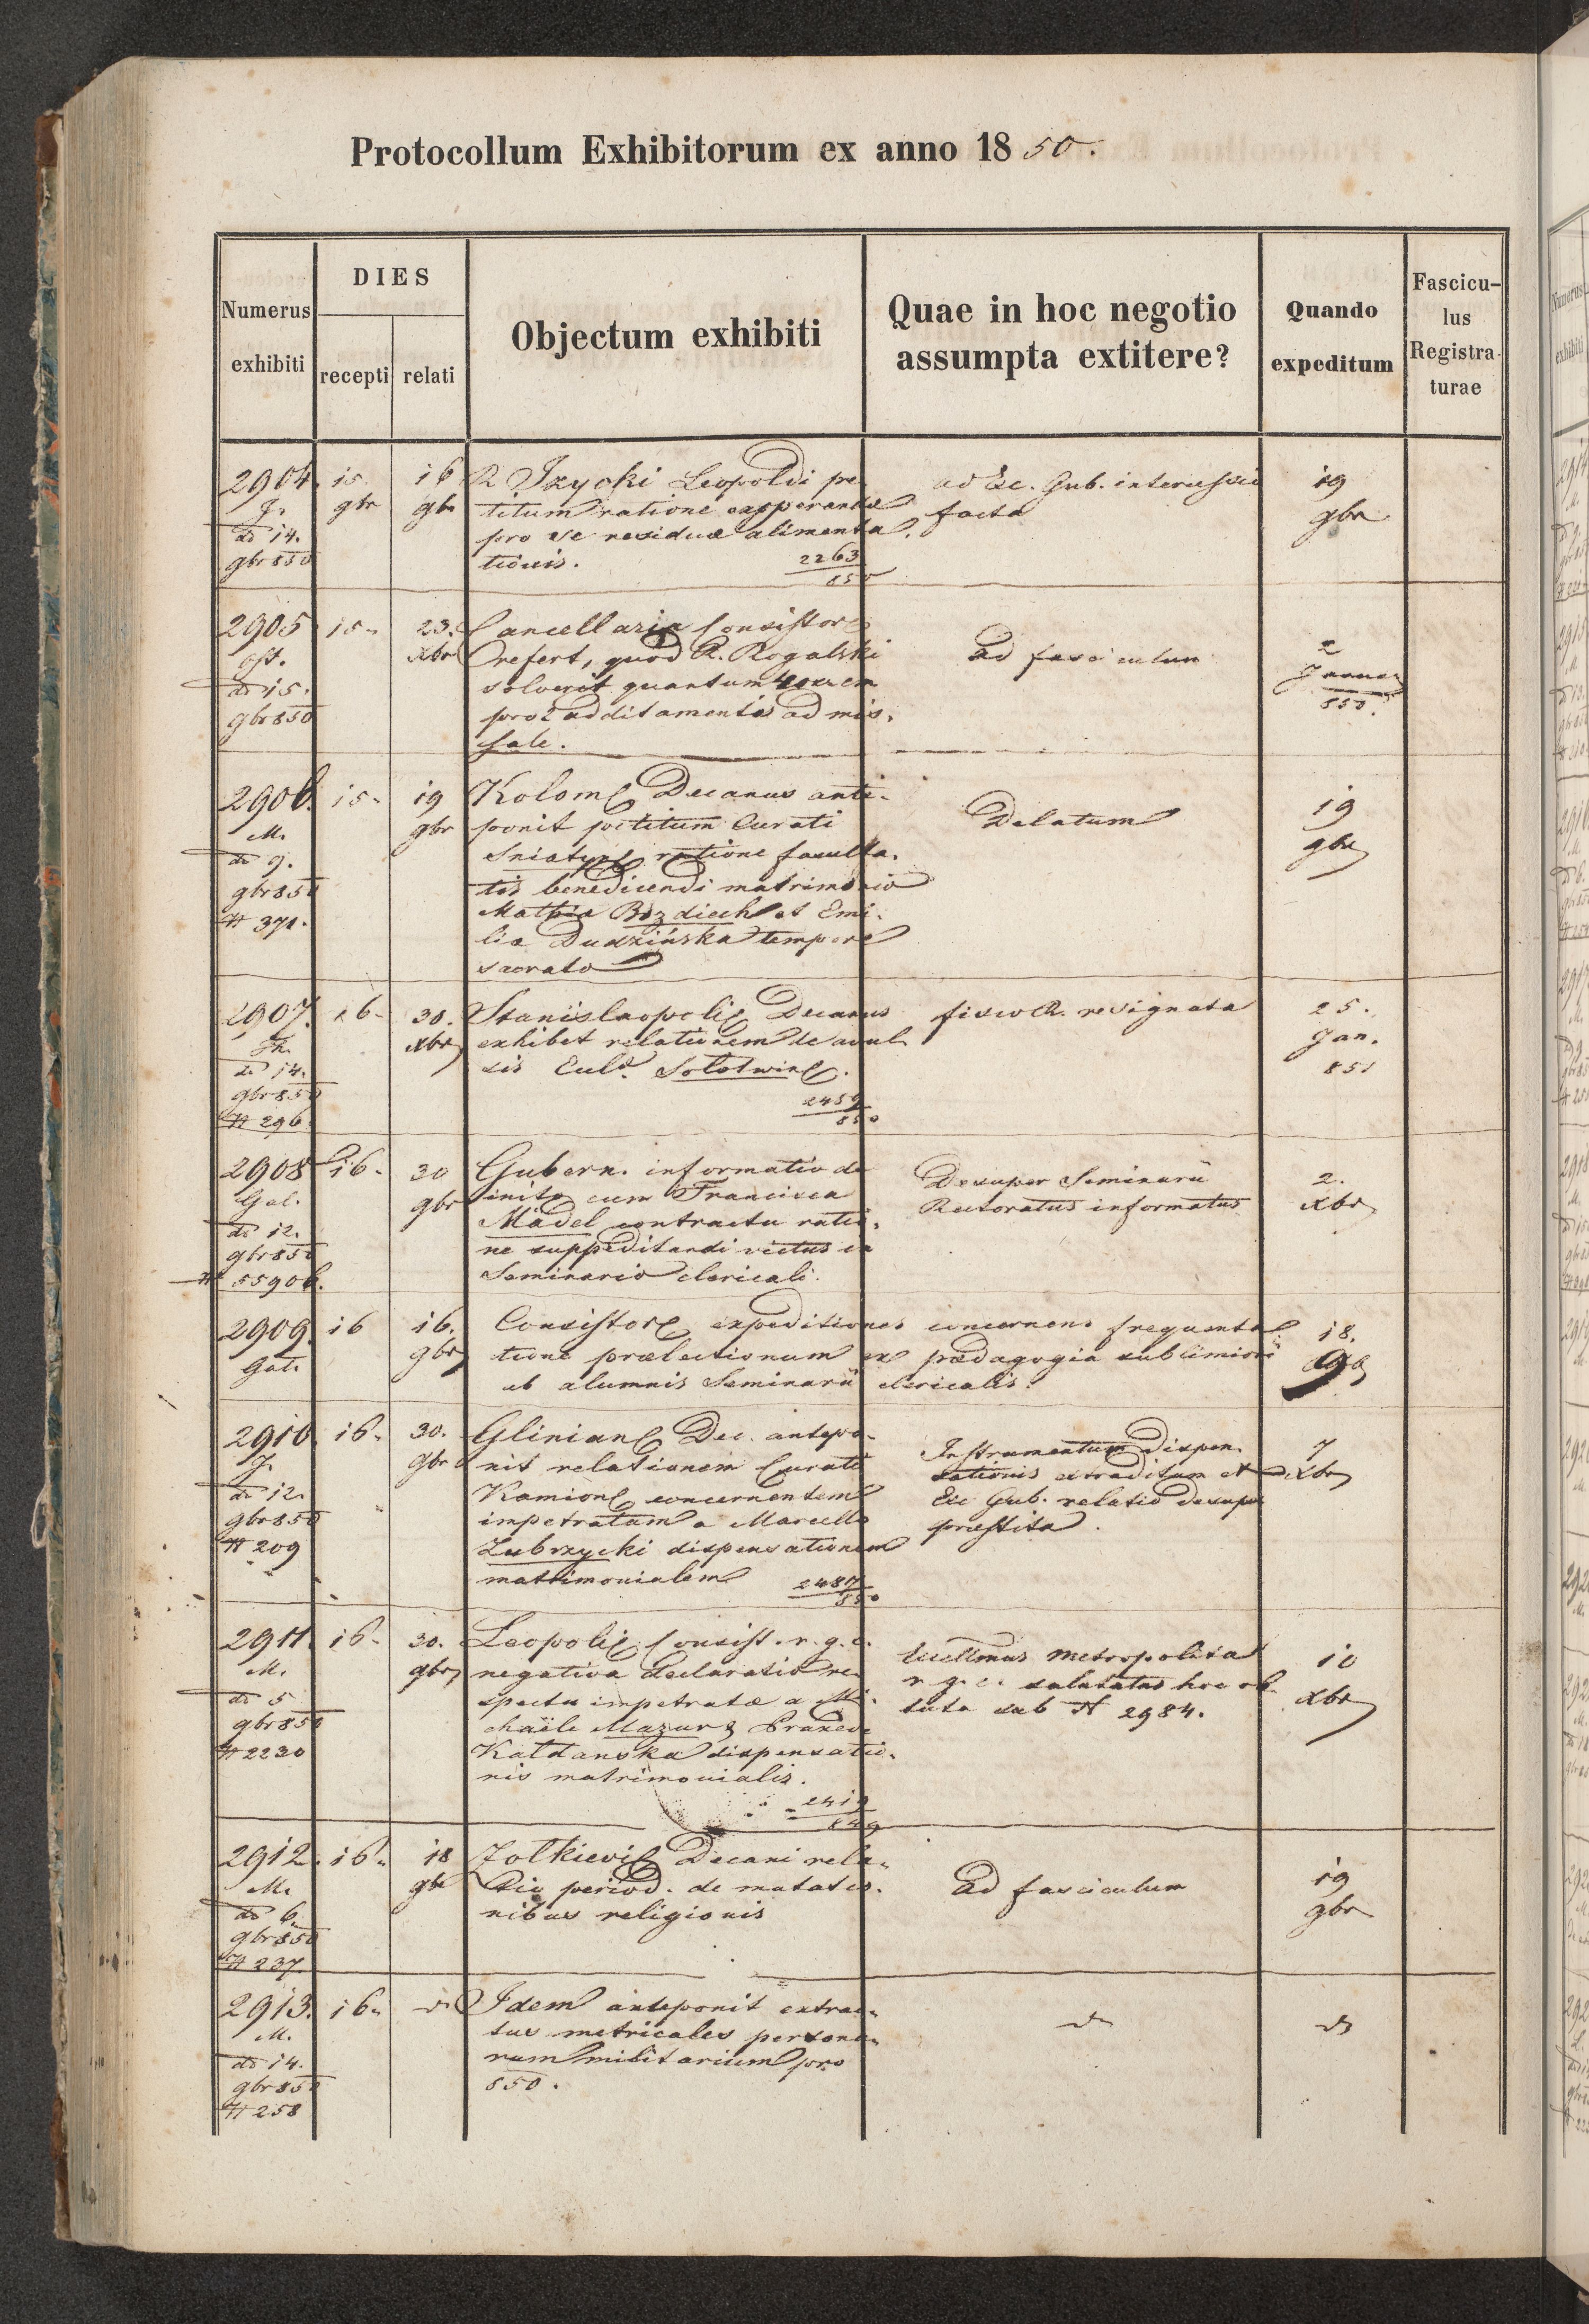 Protocollum Exhibitorum ex anno 1850.
Numerus exhibiti
DIES
recepti
relati
Objectum exhibiti
Quae in hoc negotio assumpta extitere?
Quando expeditum
Fascicu-
lus
Registra-
turae
2904
J.
do 14.
9br 850
15
9br
16
9br
R Izycki Leopoldi pe
titum ratione
pro se residuæ alimenta
tionis.
2263
850
ad Exc. Gub.
facta
19
9br
2905
do 15.
9br 850
15
23.
Xbr
Cancellaria Consistor
refert, quod R. Rogalski
solverit quantum
pro 2 additamentis ad mis-
sale.
ad fasciculum
2
850.
2906.
M.
do 9.
9br 850
N 371.
15
19
9br
Kolom Decanus ante-
ponit petitum Curati
Sniatyn ratione faculta-
tis benedicendi matrimonio
Mathia Bozdiech et Emi-
lia Dudzińska tempore
sacrato
Delatum
19
9br
2907.
do 14.
9br 850
N 296
16
30.
Xbr
Stanislaopoli Decanus
exhibet relationem de
sis Solotwin.
2459
850
R. resignata
25.
Jan.
851
2908
Gal.
do 12.
9br 850
N 55906.
16
30
9br
Gubern. informatio de
inito cum Francisca
Mädel contractu ratio-
ne suppeditandi victus in
Seminario clericali.
Desuper Seminarii
Rectoratus informatus
2.
Xbr
2909.
Gal.
16
16.
9br
Consistor expeditiones concernens frequenta
tione prælectionum ex pædagogia sublimiori
ab alumnis Seminarii clericalis.
18.
9b
2910.
J.
do 12.
9br 850
N 209
16
30.
9br
Glinian Dec. antepo-
nit relationem Curati
Kamion concernentem
impetratam a Marcello
Zubrzycki dispensationem
matrimonialem
2487
850
Instrumentum dispen-
sationis extraditum et
Exc Gub. relatio desuper
præstita.
7
Xbr
2911.
M.
do 5
9br 850
N 2230
16
30.
9br
Leopoli Consist. r. g. c.
negativa declaratio re-
spectu impetratæ a Mi-
chaële Mazur & Praxede
Kaldanska dispensatio-
nis matrimonialis.
2419
849
Excellmus Metropolita
r. g. c. salutatus hoc ob-
tutu sub N 2984.
10
Xbr
2912.
M.
do 6.
9br 850
N 237
16
18
9br
Zolkievi Decani rela-
tio period. de mutatio-
nibus religionis
ad fasciculum
19
9br
2913.
M.
do 14.
9br 850
N 258
16
do
Idem anteponit extrac-
tus metricales persona-
rum militarium pro
850.
do
do